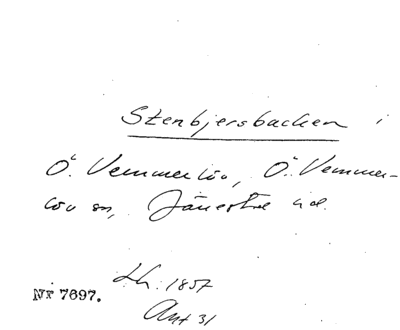 Stenbjersbacken i
Ö. Vemmerlöv, Ö. Vemmer-
löv sn, Järrestad hd.
Lh. 1857
Nr 7697.
Ant 31